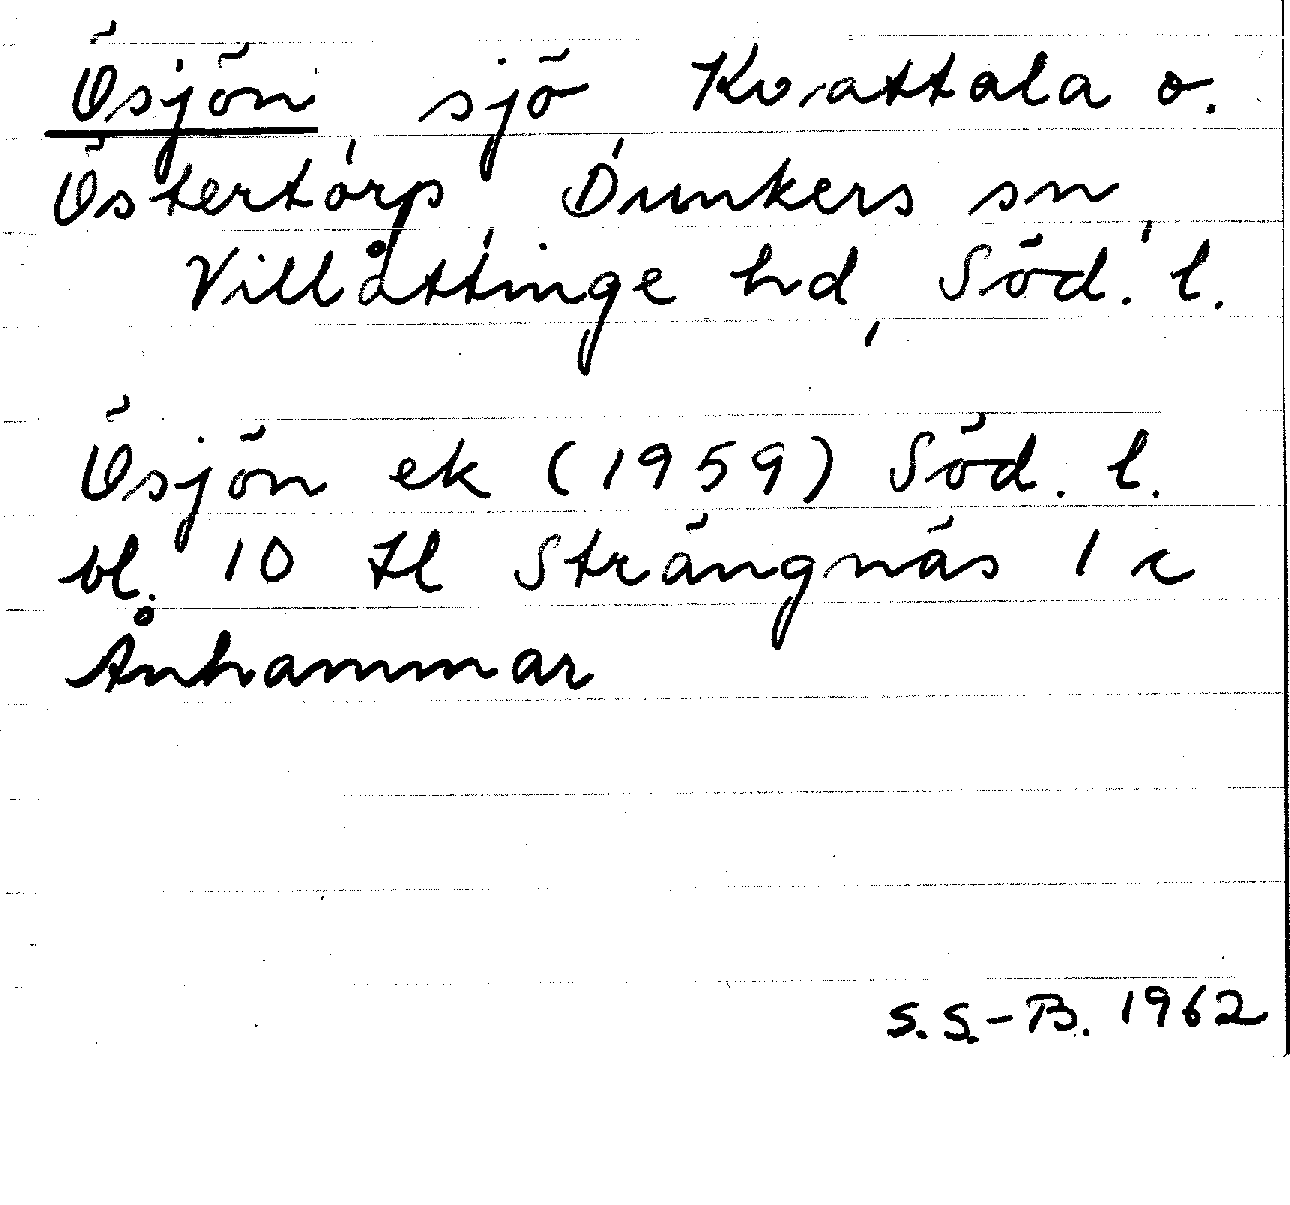 Ösjön, sjö, Kvattala o.
Östertorp, Dunkers sn,
Villåttinge hd, Söd. l.
Ösjön ek (1959) Söd. l.
bl. 10 H Strängnäs 1 c
Ånhammar
S. S.-B. 1962